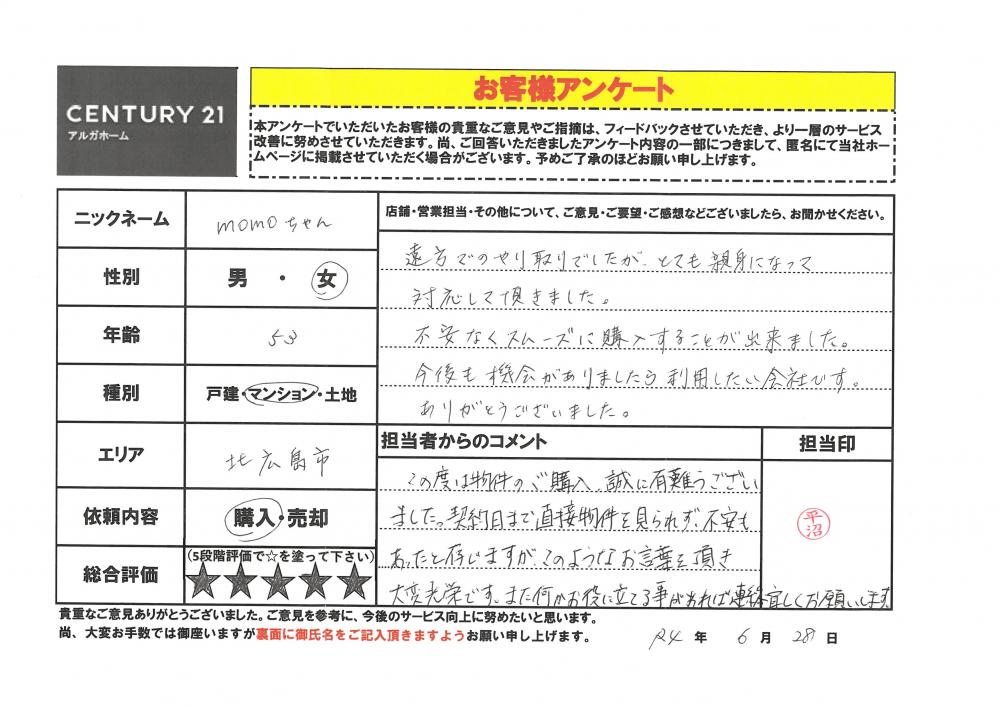 CENTURY 21
アルガホーム
お客様アンケート
本アンケートでいただいたお客様の貴重なご意見やご指摘は、フィードバックさせていただき、より一層のサービス
改善に努めさせていただきます。尚、ご回答いただきましたアンケート内容の一部につきまして、匿名にて当社ホー
ムページに掲載させていただく場合がございます。予めご了承のほどお願い申し上げます。
ニックネーム
momoちゃん
性別
男 ・ 女
年齢
53
種別
戸建・マンション・土地
エリア
北広島市
依頼内容
購入・売却
総合評価
(5段階評価で☆を塗って下さい)
★★★★★
店舗・営業担当・その他について、ご意見・ご要望・ご感想などございましたら、お聞かせください。
遠方でのやり取りでしたが、とても親身になって
対応して頂きました。
不安なくスムーズに購入することが出来ました。
今後も機会がありましたら利用したい会社です。
ありがとうございました。
担当者からのコメント
担当印
この度は物件のご購入、誠に有難うござい
ました。契約日まで直接物件を見られず、不安も
あったと存じますが、このようなお言葉を頂き
大変光栄です。また何かお役に立てる事があれば連絡宜しくお願いします
平沼
貴重なご意見ありがとうございました。ご意見を参考に、今後のサービス向上に努めたいと思います。
尚、大変お手数では御座いますが裏面に御氏名をご記入頂きますようお願い申し上げます。
R4 年 6 月 28 日